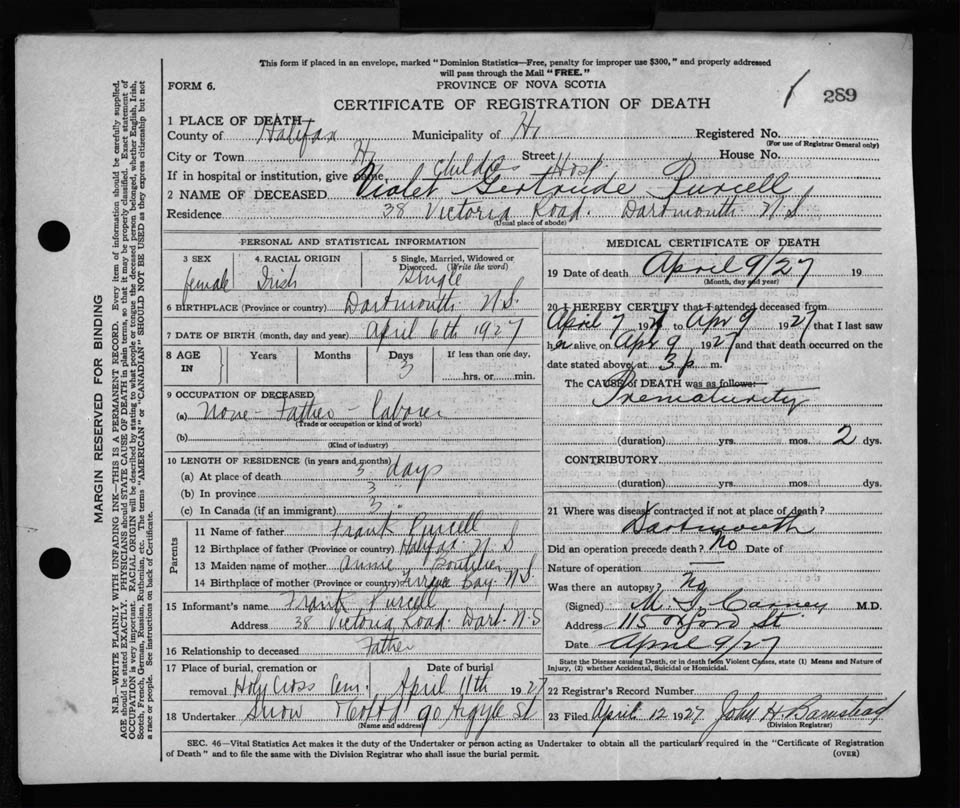 This form if placed in an envelope, marked "Dominion Statistics—Free, penalty for improper use $300," and properly addressed
will pass through the Mail "FREE."
FORM 6.
PROVINCE OF NOVA SCOTIA
CERTIFICATE OF REGISTRATION OF DEATH
1 289
1 PLACE OF DEATH
County of Halifax Municipality of Hx Registered No.
(For use of Registrar General only)
City or Town Hx Street House No.
If in hospital or institution, give name, Childrs Hosp.
2 NAME OF DECEASED Violet Gertrude Purcell
Residence 38 Victoria Road. Dartmouth N.S.
(Usual place of abode)
PERSONAL AND STATISTICAL INFORMATION
3 SEX female
4 RACIAL ORIGIN Irish
5 Single, Married, Widowed or
Divorced. (Write the word) Single
6 BIRTHPLACE (Province or country) Dartmouth N.S.
7 DATE OF BIRTH (month, day and year) April 6th 1927
8 AGE IN Years Months Days 3 If less than one day,
hrs. or min.
9 OCCUPATION OF DECEASED
(a) None - Father - Laborer
(Trade or occupation or kind of work)
(b)
(Kind of industry)
10 LENGTH OF RESIDENCE (in years and months)
(a) At place of death 3 days
(b) In province 3 "
(c) In Canada (if an immigrant) 3 "
Parents
11 Name of father Frank Purcell
12 Birthplace of father (Province or country) Halifax N.S
13 Maiden name of mother Annie Boutilier
14 Birthplace of mother (Province or country) Bay. N.S.
15 Informant's name Frank Purcell
Address 38 Victoria Road. Dart. N.S
16 Relationship to deceased Father
17 Place of burial, cremation or Date of burial
removal Holy Cross Cem. April 11th 1927
18 Undertaker Snow 90 Argyle St
(Name and address)
MEDICAL CERTIFICATE OF DEATH
19 Date of death April 9/27 19
(Month, day and year)
20 I HEREBY CERTIFY that I attended deceased from
April 7 1927 to Apr 9 1927 that I last saw
h alive on Apr 9 1927 and that death occurred on the
date stated above, at 3 p m.
The CAUSE of DEATH was as follows:
Prematurity
(duration) yrs. mos. 2 dys.
CONTRIBUTORY
(duration) yrs. mos. dys.
21 Where was disease contracted if not at place of death?
Dartmouth
Did an operation precede death? No Date of
Nature of operation —
Was there an autopsy? No
(Signed) M. G. Carney M.D.
Address 115 Oxford St.
Date April 9/27
State the Disease causing Death, or in death from Violent Causes, state (1) Means and Nature of
Injury, (2) whether Accidental, Suicidal or Homicidal.
22 Registrar's Record Number
23 Filed April 12 1927 John H Barnstead
(Division Registrar)
SEC. 46—Vital Statistics Act makes it the duty of the Undertaker or person acting as Undertaker to obtain all the particulars required in the "Certificate of Registration
of Death" and to file the same with the Division Registrar who shall issue the burial permit. (OVER)
MARGIN RESERVED FOR BINDING
N.B.—WRITE PLAINLY WITH UNFADING INK—THIS IS A PERMANENT RECORD. Every item of information should be carefully supplied.
AGE should be stated EXACTLY. PHYSICIANS should STATE CAUSE OF DEATH in plain terms, so that it may be properly classified. Exact statement of
OCCUPATION is very important. RACIAL ORIGIN will be described by stating to what people or tongue the deceased person belonged, whether English, Irish,
Scotch, French, German, Russian, Ruthenian, etc. The terms "AMERICAN" or "CANADIAN" SHOULD NOT BE USED as they express citizenship but not
a race or people. See instructions on back of Certificate.